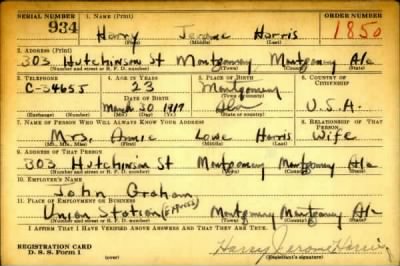 SERIAL NUMBER 1. NAME (Print) ORDER NUMBER
934 Harry Jerome Harris 1850
(First) (Middle) (Last)
2. ADDRESS (Print)
303 Hutchinson St Montgomery Montgomery Ala
(Number and street or R. F. D. number) (Town) (County) (State)
3. TELEPHONE 4. AGE IN YEARS 5. PLACE OF BIRTH 6. COUNTRY OF CITIZENSHIP
C-34655 23 Montgomery
DATE OF BIRTH (Town or county)
March 30 1917 Ala U.S.A.
(Exchange) (Number) (Mo.) (Day) (Yr.) (State or country)
7. NAME OF PERSON WHO WILL ALWAYS KNOW YOUR ADDRESS 8. RELATIONSHIP OF THAT PERSON
Mrs. Annie Lowe Harris Wife
(Mr., Mrs., Miss) (First) (Middle) (Last)
9. ADDRESS OF THAT PERSON
303 Hutchinson St Montgomery Montgomery Ala
(Number and street or R. F. D. number) (Town) (County) (State)
10. EMPLOYER'S NAME
John Graham
11. PLACE OF EMPLOYMENT OR BUSINESS
Union Station (Express) Montgomery Montgomery Ala
(Number and street or R. F. D. number) (Town) (County) (State)
I AFFIRM THAT I HAVE VERIFIED ABOVE ANSWERS AND THAT THEY ARE TRUE.
REGISTRATION CARD Harry Jerome Harris
D. S. S. Form 1 (over) (Registrant's signature)